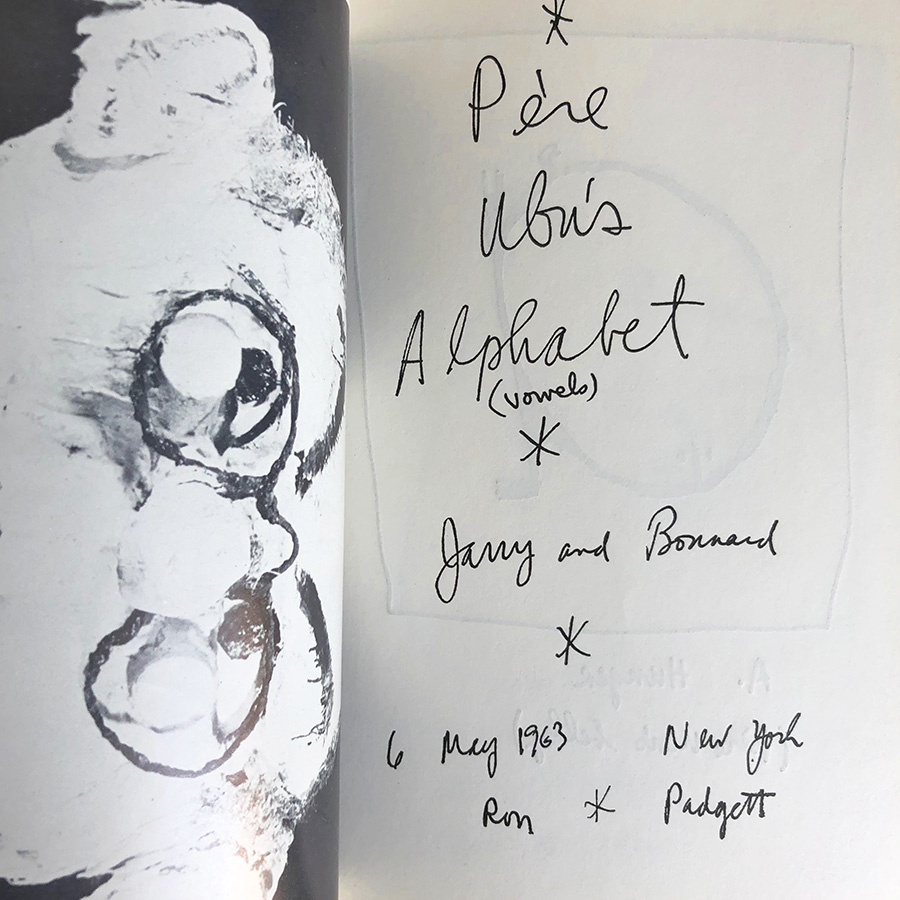 *
Père
Ubu's
Alphabet
(vowels)
*
Jarry and Bonnard
*
6 May 1963 New York
Ron * Padgett
A. Hunger